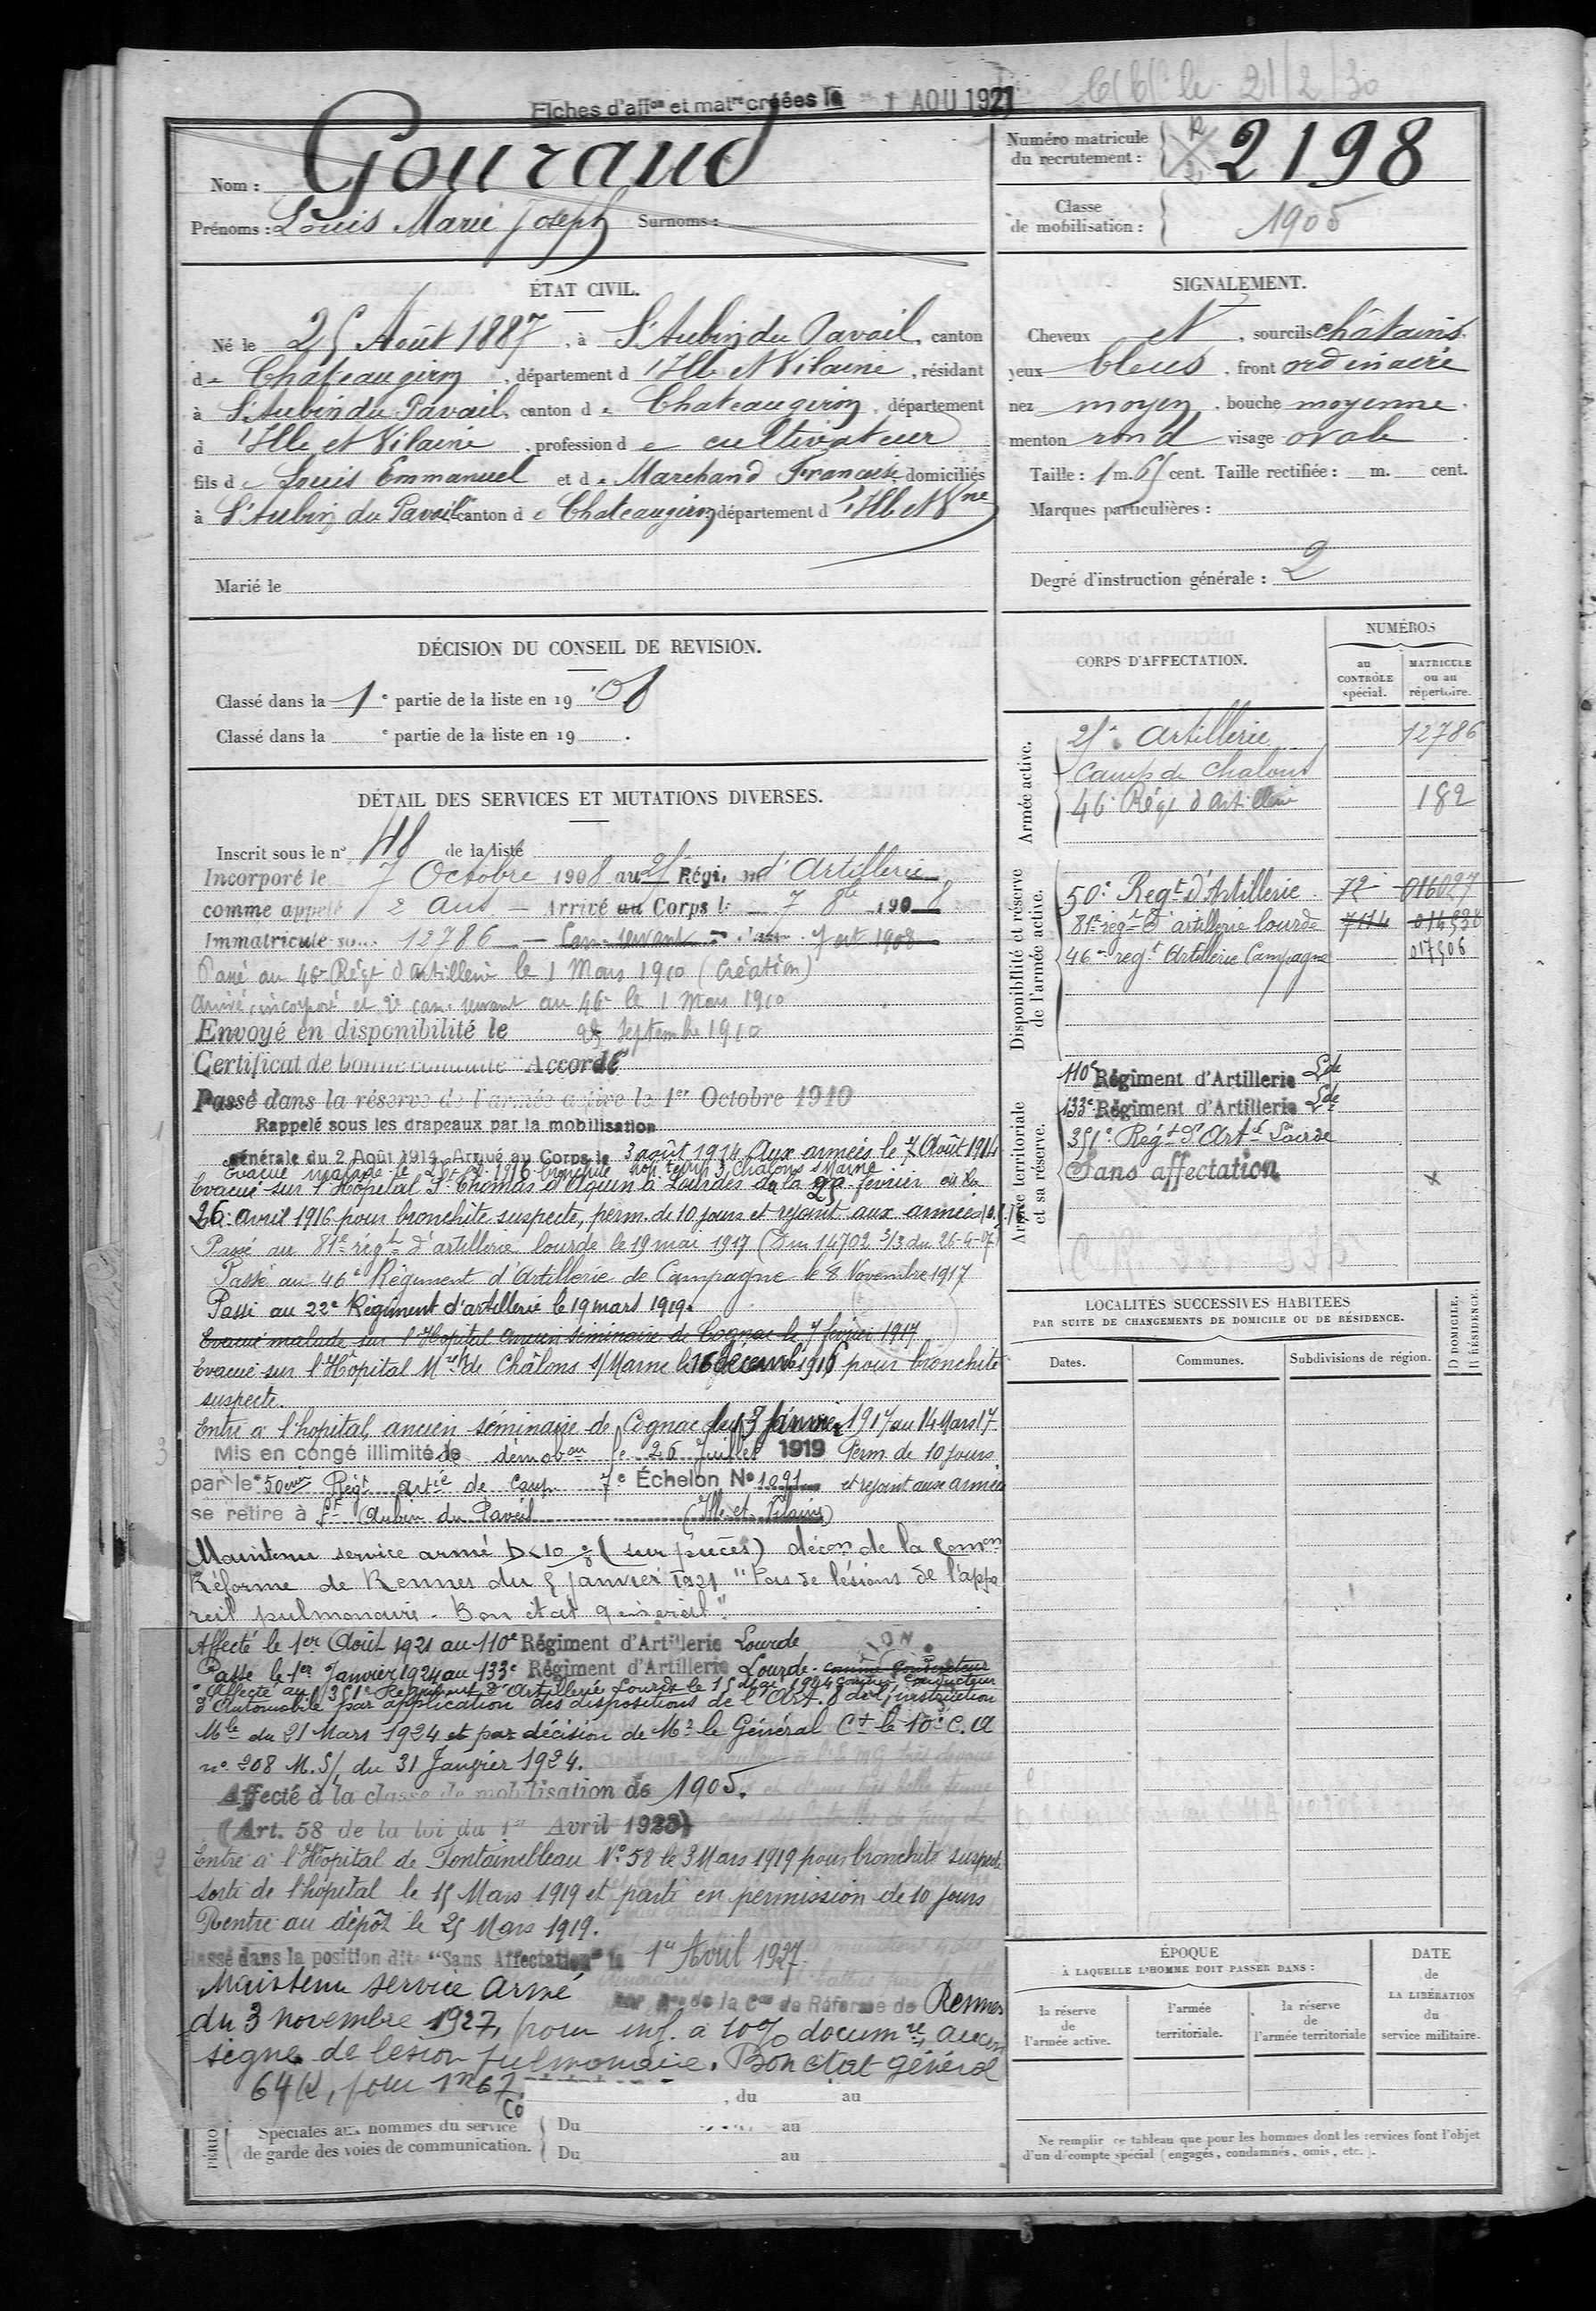 Fiches d'affon et matre créées le 1 AOU 1921
le 21/2/30
Nom : Gouraud
Prénoms : Louis Marie Joseph Surnoms :
Numéro matricule du recrutement : 2198
Classe de mobilisation : 1905
ÉTAT CIVIL.
Né le 25 Août 1887, à St Aubin du Pavail, canton
de Chateaugiron, département d'Ille et Vilaine, résidant
à St Aubin du Pavail, canton de Chateaugiron, département
d'Ille et Vilaine, profession de cultivateur
fils de Louis Emmanuel et de Marchand Francoise domiciliés
à St Aubin du Pavail canton de Chateaugiron département d'Ille et Vne
Marié le
SIGNALEMENT.
Cheveux et, sourcils châtains
yeux bleus, front ordinaire
nez moyen, bouche moyenne.
menton rond visage ovale
Taille : 1 m. 65 cent. Taille rectifiée : m. cent.
Marques particulières :
Degré d'instruction générale : 2
DÉCISION DU CONSEIL DE REVISION.
Classé dans la 1e partie de la liste en 1908
Classé dans la e partie de la liste en 19 .
DÉTAIL DES SERVICES ET MUTATIONS DIVERSES.
Inscrit sous le n° 48 de la liste
Incorporé le 7 Octobre 1908 au 25e Régi. d'Artillerie
comme appelé 2 ans Arrivé au Corps le 7 8bre 1908
Immatriculé sous 12786 Can. servant 7 oct 1908
Passé au 46e Régt d'artillerie le 1 Mars 1910 (Création)
Arrivé, incorporé et 2e can. servant au 46e le 1 Mars 1910
Envoyé en disponibilité le 25 Septembre 1910
Certificat de bonne conduite "Accordé"
Passé dans la réserve de l'armée active le 1er Octobre 1910
Rappelé sous les drapeaux par la mobilisation
générale du 2 Août 1914. Arrivé au Corps le 3 août 1914 Aux armées le 7 Août 1914
Evacué malade le 1916 bronchite Chalons s Marne
Evacué sur l'Hôpital St Thomas d'Aquin à Lourdes février
26 avril 1916 pour bronchite suspecte, perm. de 10 jours et rejoint aux armées
Passé au 81e régt d'artillerie lourde le 19 mai 1917 (14702 3/3 du 26-4-17)
Passé au 46e Régiment d'Artillerie de Campagne le 8 Novembre 1917
Passé au 22e Régiment d'artillerie le 19 mars 1919.
Evacué malade sur l'Hopital ancien séminaire de Cognac le 7 février 1917
Evacué sur l'Hôpital Mre de Châlons s/Marne le 16 décemb 1916 pour bronchite
suspecte.
Entré à l'hopital, ancien séminaire de Cognac du 3 Janvier 1917 au 14 Mars 17
Mis en congé illimité de démobon le 26 Juillet 1919 Perm. de 10 jours
par le 50ème Régt artie de Camp 7e Échelon N° 1091 et rejoint aux armées
se retire à St Aubin du Pavail (Ille et Vilaine)
Maintenu service armé D<10% (sur pièces) décon de la Comon
Réforme de Rennes du 5 janvier 1921 "Pas de lésions de l'appa
reil pulmonaire. Bon état général".
Affecté le 1er Août 1921 au 110e Régiment d'Artillerie Lourde
Passé le 1er Janvier 1924 au 133e Régiment d'Artillerie Lourde. comme Conducteur
Affecté au 351e Régiment d'Artillerie Lourde le 15 Mai 1924 comme Conducteur
d'Automobile par application des dispositions de l'Art. 8 de l'instruction
Mle du 21 Mars 1924 et par décision de Mr le Général Ct le 10e C. A
n° 208 M. S/. du 31 Janvier 1924.
Affecté à la classe de mobilisation de 1905.
(Art. 58 de la loi du 1er Avril 1923)
Entré à l'Hôpital de Fontainebleau N° 58 le 3 Mars 1919 pour bronchite suspecte
Sorti de l'hôpital le 15 Mars 1919 et parti en permission de 10 jours
Rentré au dépôt le 25 Mars 1919.
Classé dans la position dite "Sans Affectation" le 1er Avril 1927.
Maintenu service Armé de la Con de Réforme de Rennes
du 3 novembre 1927, pour inf. à 10% documre, aucun
signe de lésion pulmonaire. Bon état général
64 K, pour 1m67.
, du au
Spéciales aux hommes du service de garde des voies de communication.
Du au
Du au
CORPS D'AFFECTATION.
NUMÉROS
au CONTRÔLE spécial.
MATRICULE ou au répertoire.
Armée active.
25e Artillerie 12786
Camp de Chalons
46e Régt d'Artillerie 182
Disponibilité et réserve de l'armée active.
50e Regt d'Artillerie 72 016027
81e régt d'artillerie lourde 7114 014530
46me regt Artillerie Campagne 017506
Armée territoriale et sa réserve.
110e Régiment d'Artillerie Lde
133e Régiment d'Artillerie Lde
351e Régt d'Artie Lourde
Sans affectation
LOCALITÉS SUCCESSIVES HABITÉES
PAR SUITE DE CHANGEMENTS DE DOMICILE OU DE RÉSIDENCE.
Dates. Communes. Subdivisions de région. D DOMICILE. R RÉSIDENCE.
ÉPOQUE
À LAQUELLE L'HOMME DOIT PASSER DANS :
la réserve de l'armée active.
l'armée territoriale.
la réserve de l'armée territoriale
DATE de LA LIBÉRATION du service militaire.
Ne remplir ce tableau que pour les hommes dont les services font l'objet
d'un décompte spécial (engagés, condamnés, omis, etc.).